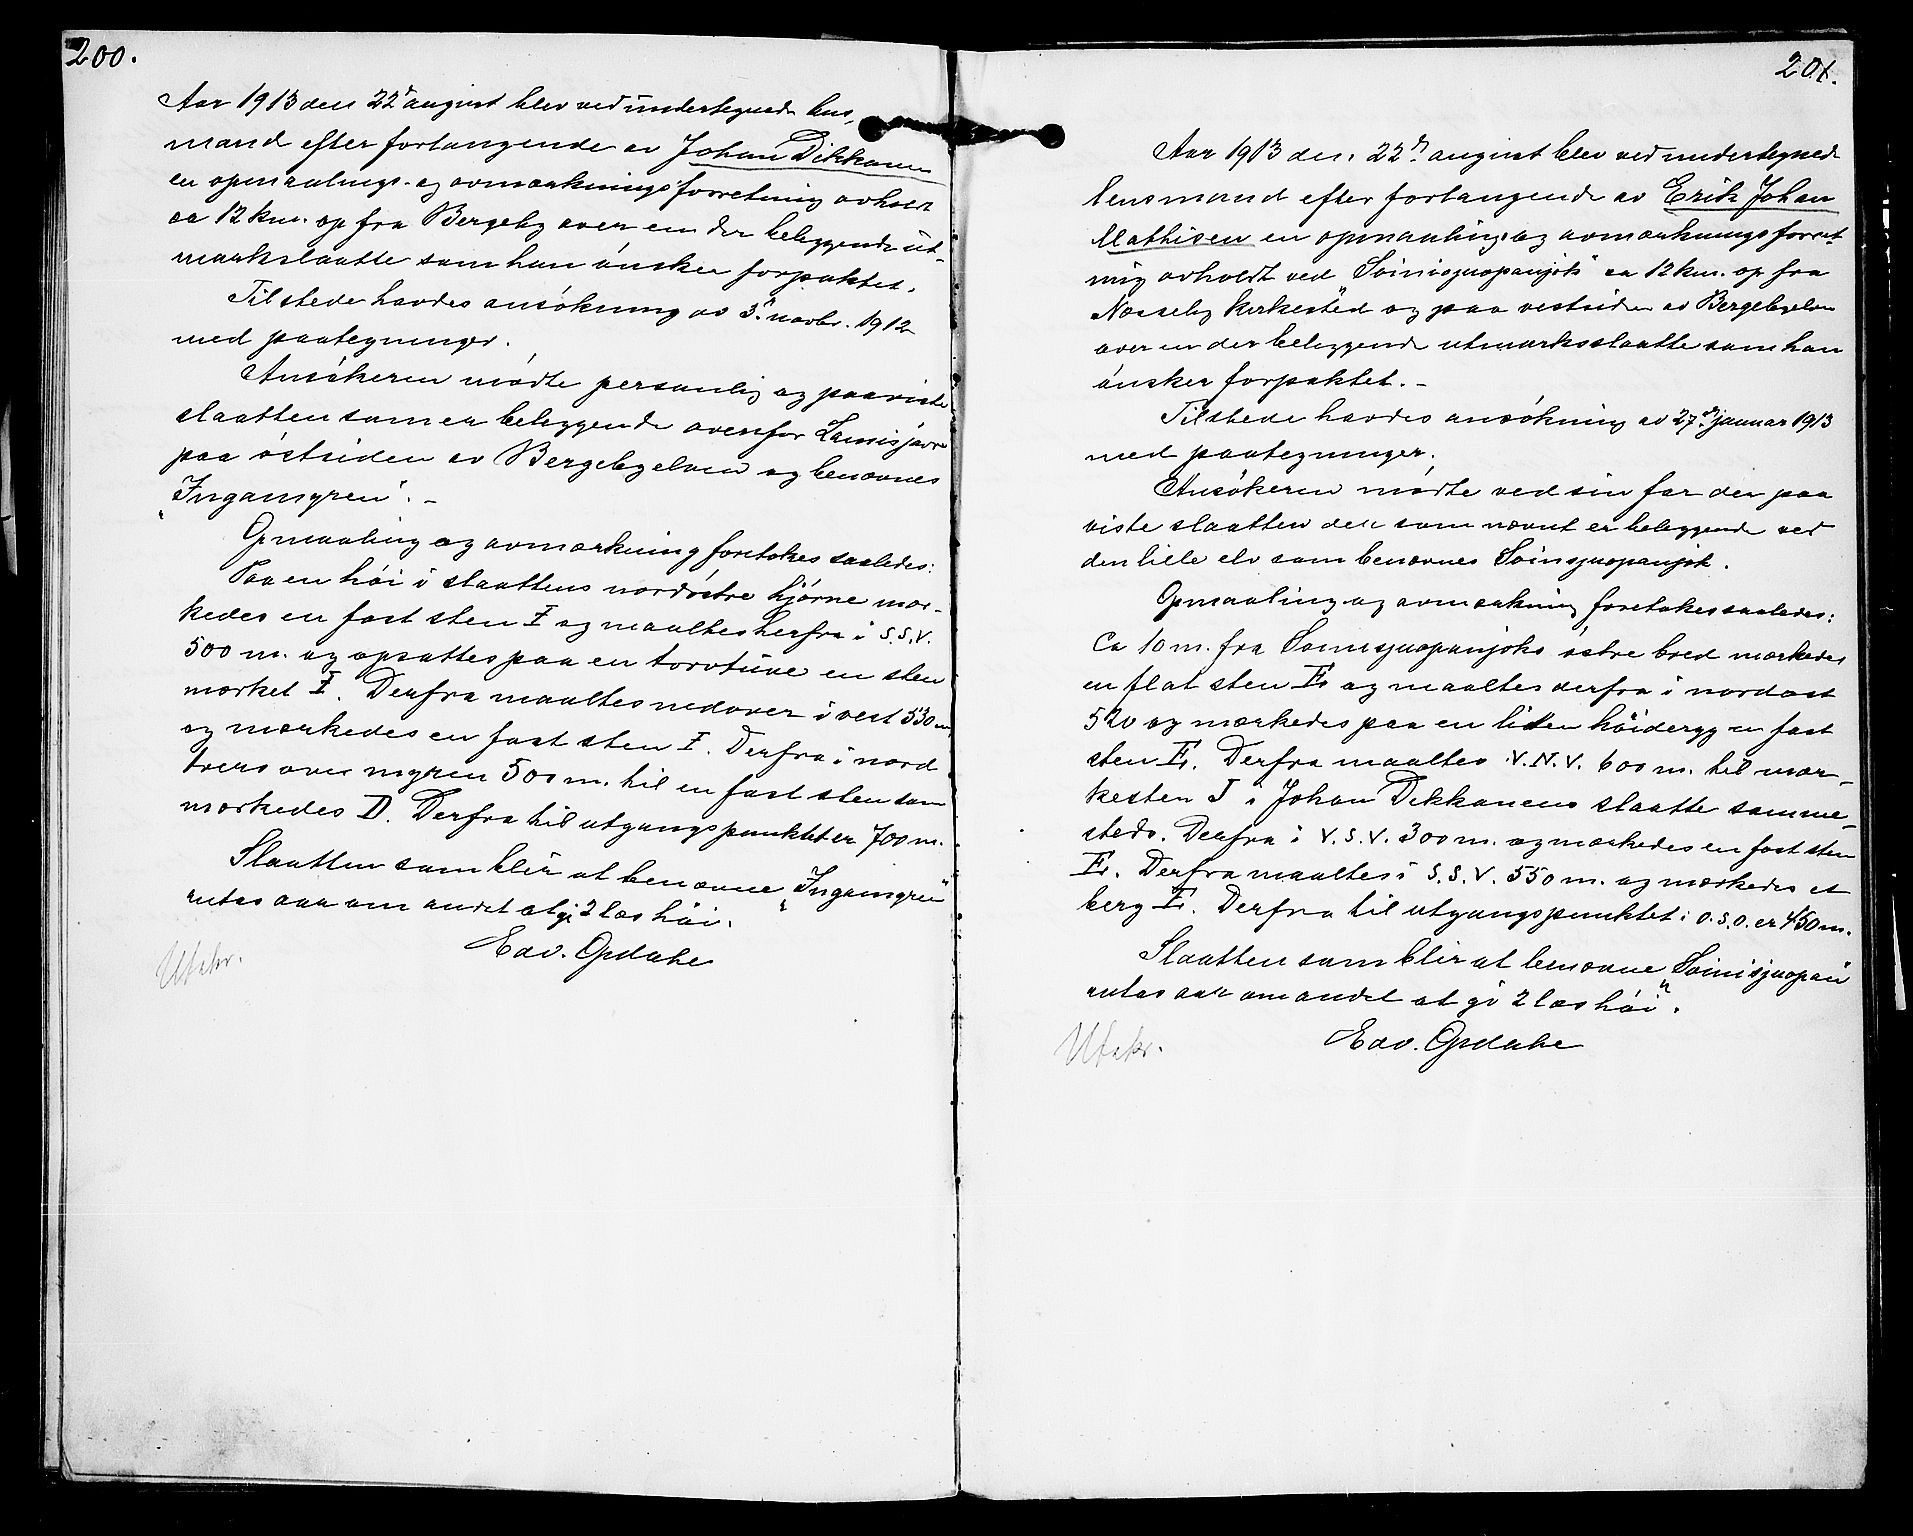 200.
Aar 1913 den 22' august blev ved undertegnede lens,
mand efter forlangende av Johan Dikkanen
en opmaalings- og avmærkningsforretning avholdt
ca 12 km. op fra Bergeby over en der beliggende ut-
markslaatte som han ønsker forpaktet.
Tilstede havdes ansökning av 3' novbr. 1912
med paategninger.
Ansökeren mödte personlig og paaviste
slaatten som er beliggende ovenfor
paa östsiden av Bergebyelven og benævnes
„Ingamyren". -
Opmaaling og avmærkning foretokes saaledes:
Paa en höi i slaattens nordöstre hjörne mær-
kedes en fast sten I og maaltes herfra i S.S.V.
500 m. og opsattes paa en torvtuve en sten
mærket I. Derfra maaltes nedover i vest 530 m
og mærkedes en fast sten I. Derfra i nord
tvers over myren 500 m. til en fast sten som
mærkedes D. Derfra til utgangspunktet er 700 m.
Slaatten som blir at benævne „Ingamyren"
antas aar om andet at gi 2 læs höi.
Edv. Opdahl
Utskr.
201.
Aar 1913 den 22' august blev ved undertegnede
lensmand efter forlangende av Erik Johan
Mathisen en opmaaling og avmærkningsforret
ning avholdt ved ca 12 km. op fra
Næsseby kirkested og paa vestsiden av Bergebyelven
over en der beliggende utmarksslaatte som han
önsker forpaktet. -
Tilstede havdes ansökning av 27' januar 1913
med paategninger.
Ansökeren mödte ved sin far der paa
viste slaatten der som nævnt er beliggende ved
den lille elv som benævnes
Opmaaling og avmærkning foretokes saaledes:
Ca 10 m. fra östre bred mærkedes
en flat sten E og maaltes derfra i nordost
520 og mærkedes paa en liten höideryg en fast
sten E. Derfra maaltes V.N.V. 600 m. til mær-
kesten I i Johan Dikkanens slaatte samme-
steds. Derfra i V.S.V. 300 m. og mærkedes en fast sten
E. Derfra maaltes i S.S.V. 550 m. og mærkedes et
berg E. Derfra til utgangspunktet i O.S.O. er 450 m.
Slaatten som blir at benævne
antas aar om andet at gi 2 læs höi.
Edv. Opdahl
Utskr.